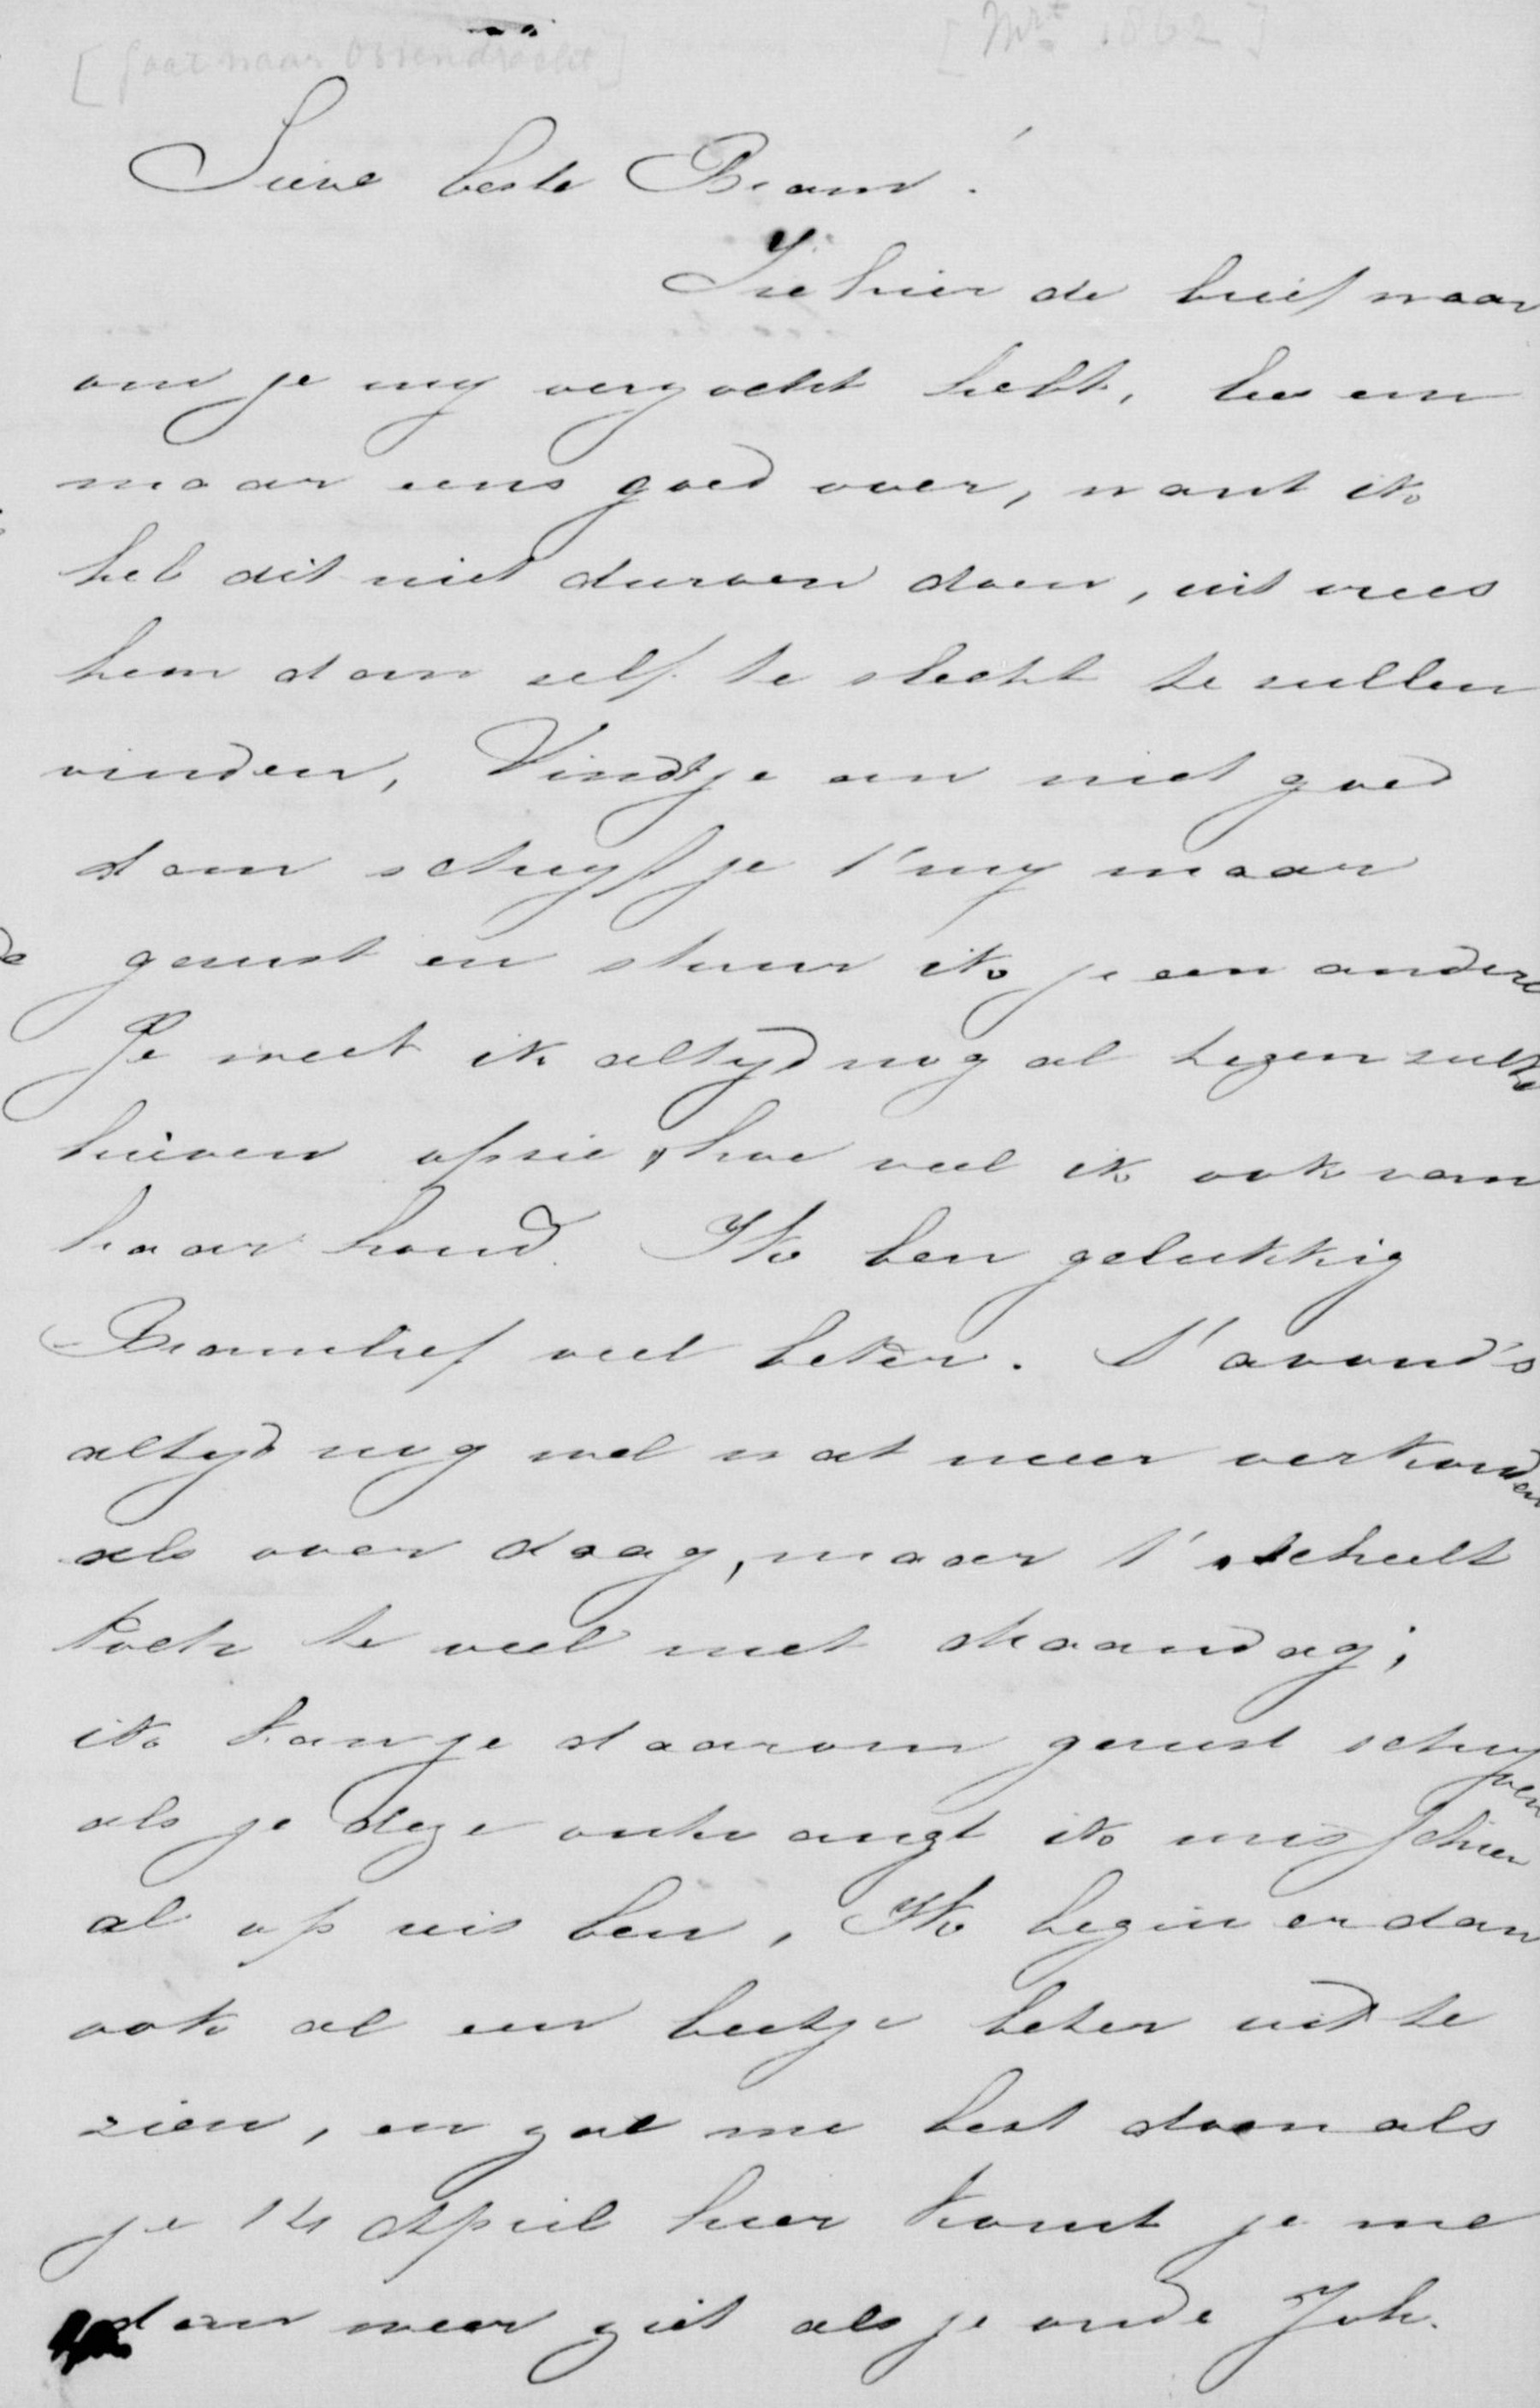 [Jaar naar Ossendrecht] [Mrt 1862]
Lieve beste Bram!
Zie hier de brief waar
om je my verzocht hebt, lees em
maar eens goed over, want ik
heb dit niet durven doen, uit vrees
hem dan zelf te slecht te zullen
vinden, Vindt je em niet goed
dan schryf je t'my maar
gerust en stuur ik je een andere
Je weet ik altyd nog al tegen zulke
brieven opzie, hoe veel ik ook van
haar houd. Ik ben gelukkig
Bramlief veel beter. s'avond's
altyd nog wel wat meer verkouden
als over daag, maar t'scheelt
toch te veel met Maandag;
ik kan je daarom gerust schryven
als je deze ontvangt ik misschien
al op reis ben, Ik begin er dan
ook al een beetje beter uit te
zien, en zal me best doen als
je 14 April hier komt je me
dan weer ziet als je oude Joh.